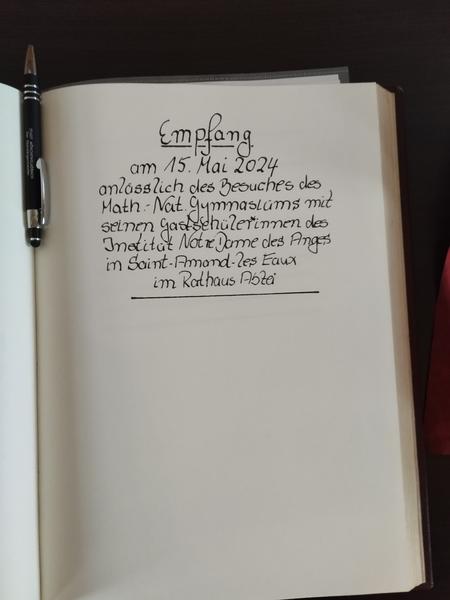 Empfang
am 15. Mai 2024
anlässlich des Besuches des
Math.-Nat. Gymnasiums mit
seinen Gastschülerinnen des
Institut Notre Dame des Anges
in Saint-Amand-les Eaux
im Rathaus Abtei